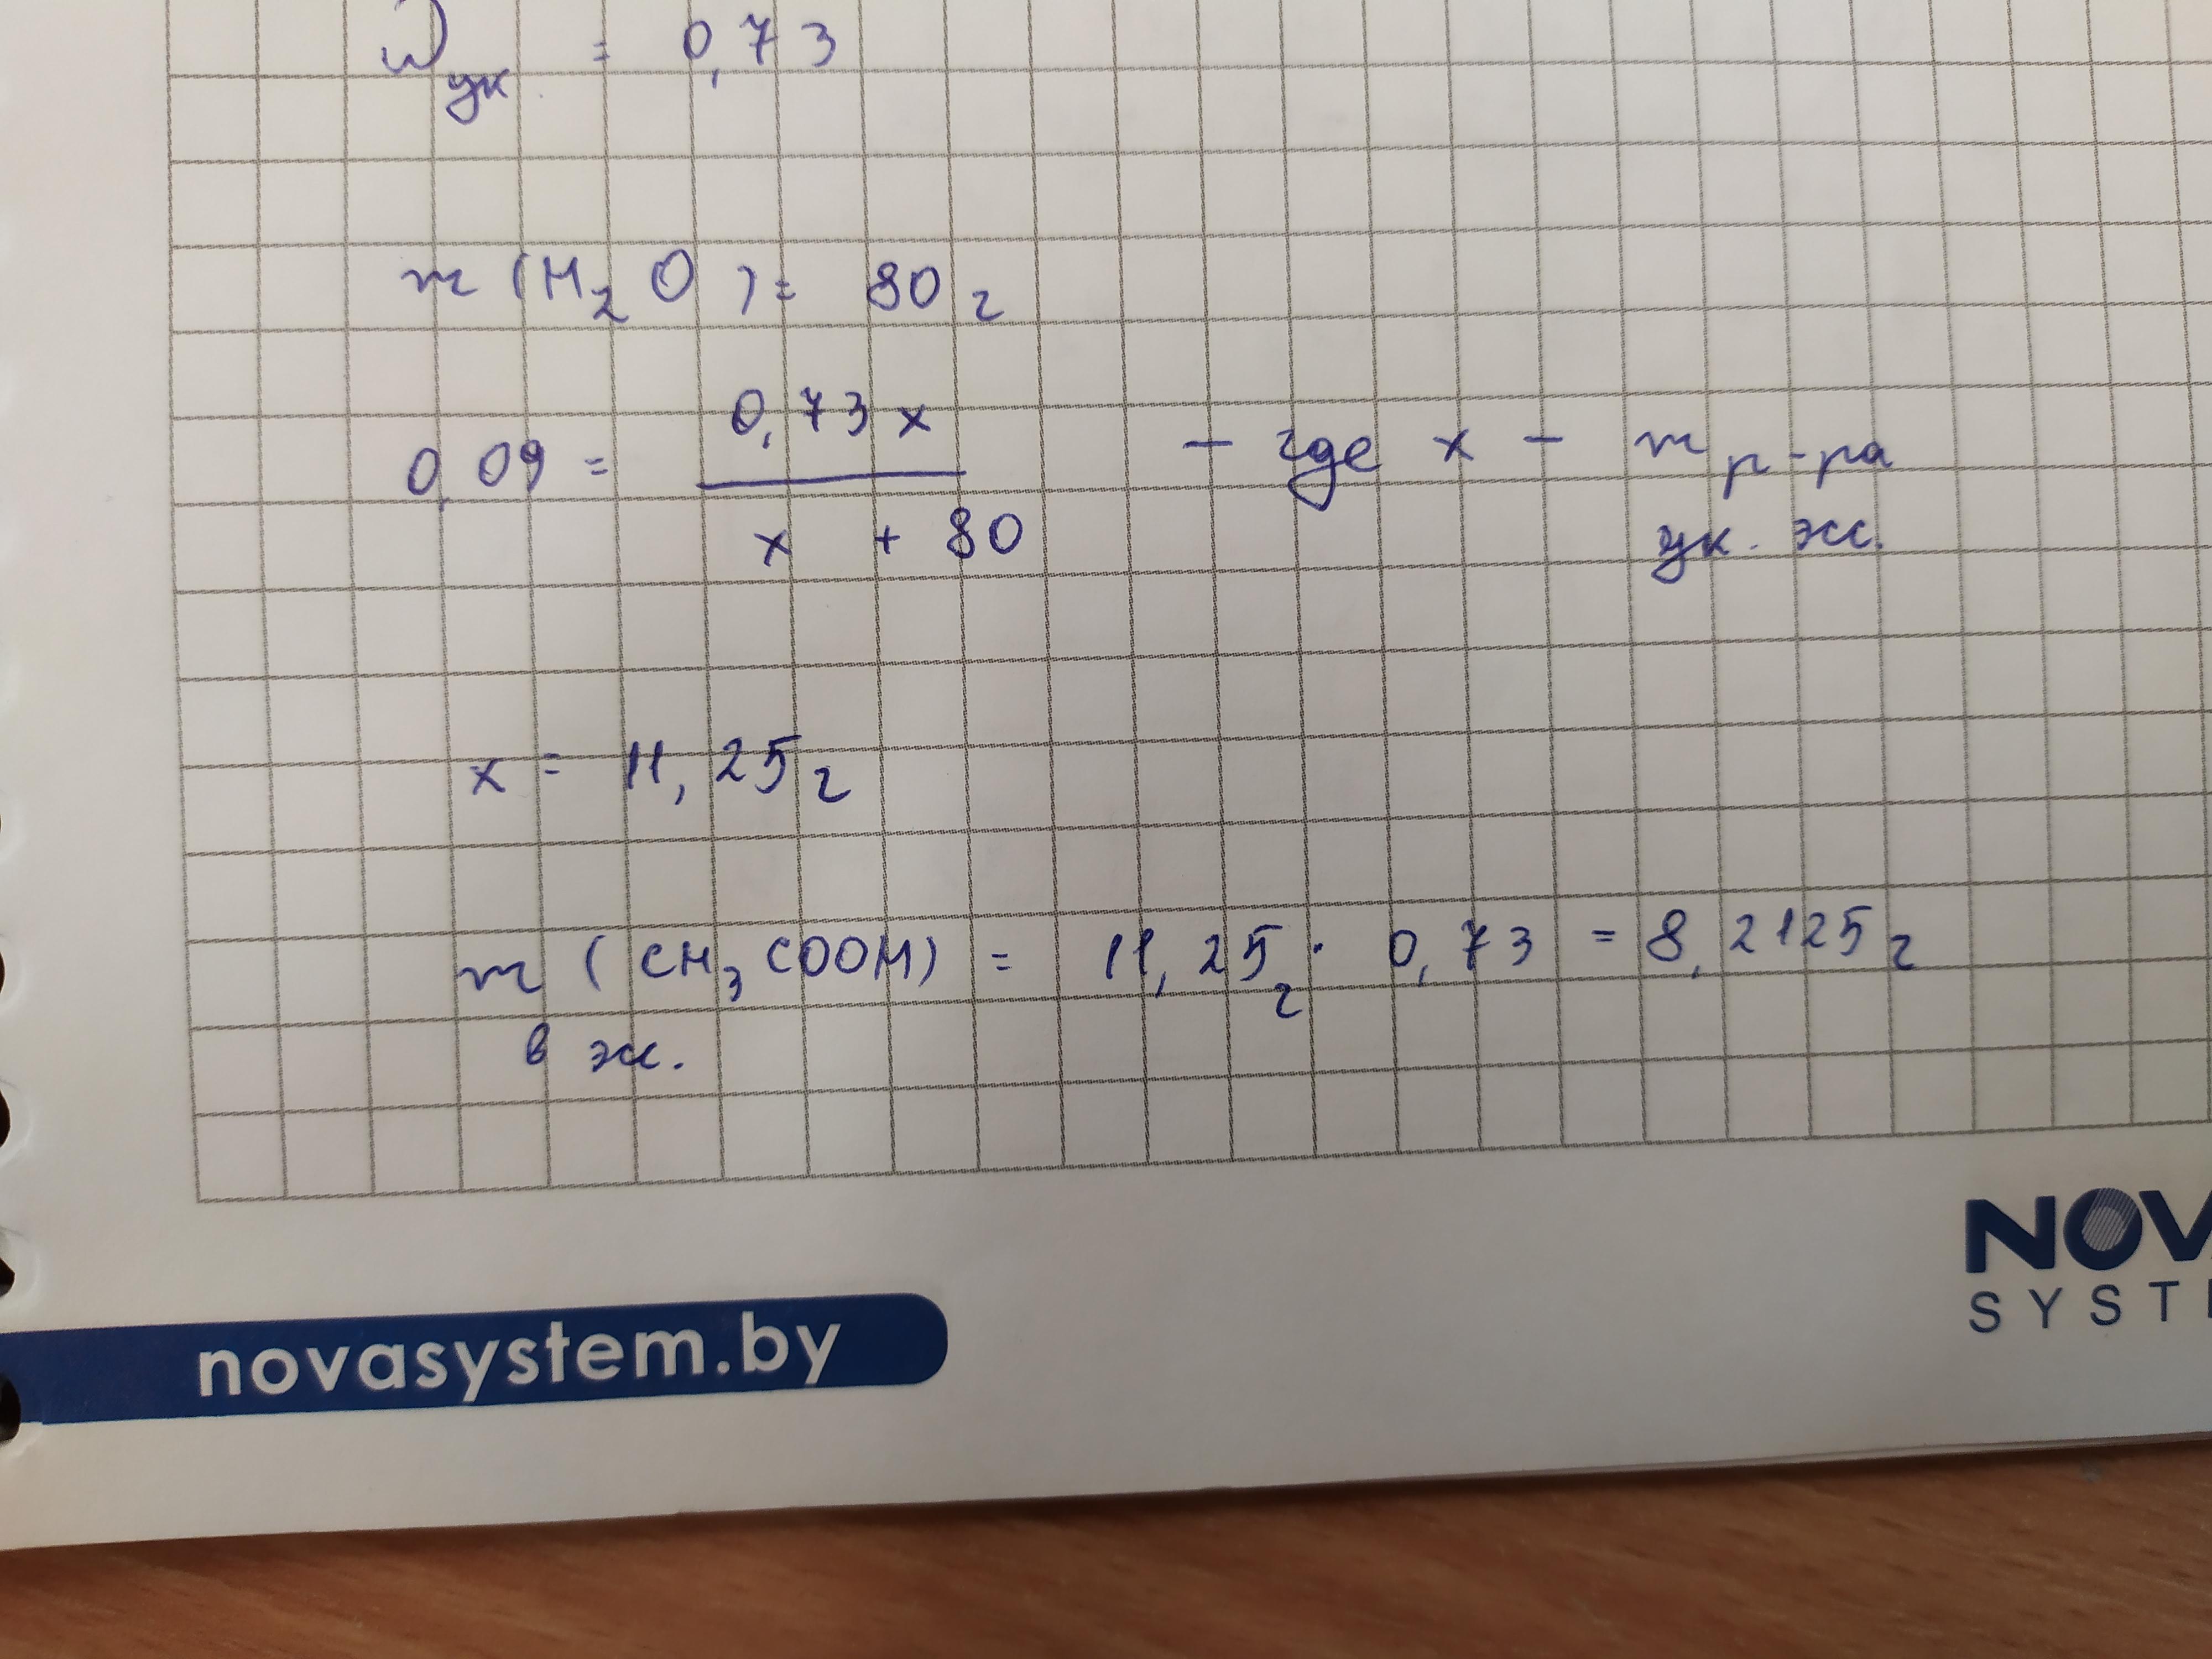 ω ук = 0,73
m (H₂O) = 80 г
0,09 = 0,73 x / x + 80 – где x – m р-ра
ук. эсс.
x = 11,25 г
m (CH₃COOH) = 11,25 г · 0,73 = 8,2125 г
в эсс.
NOV
SYST
novasystem.by